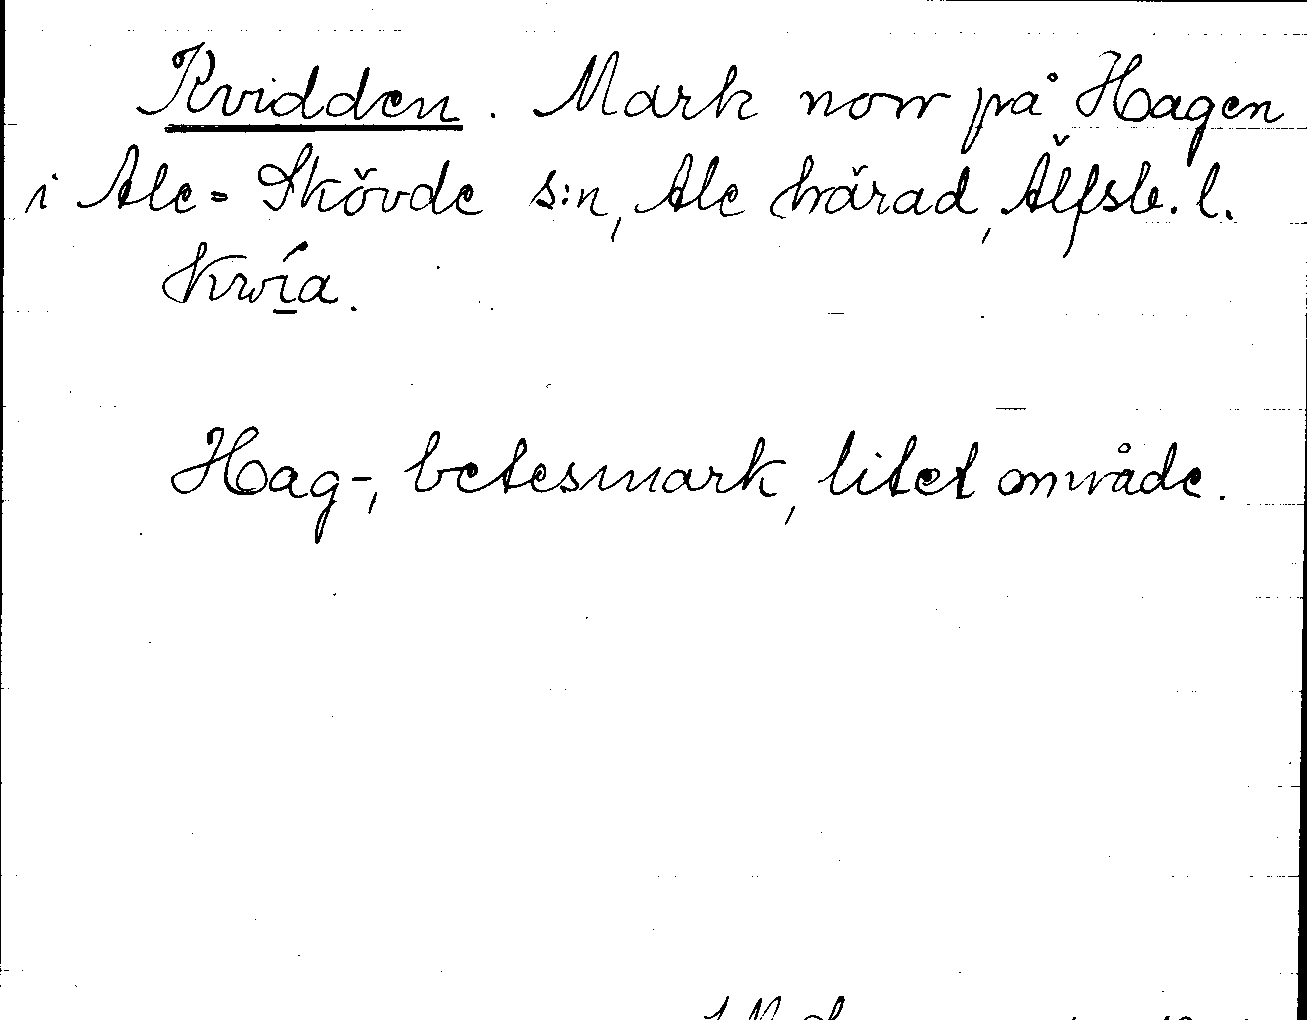 Kvidden. Mark norr på Hagen
i Ale-Skövde s:n, Ale härad, Älfsb. l.
Krvía.
Hag-, betesmark, litet område.